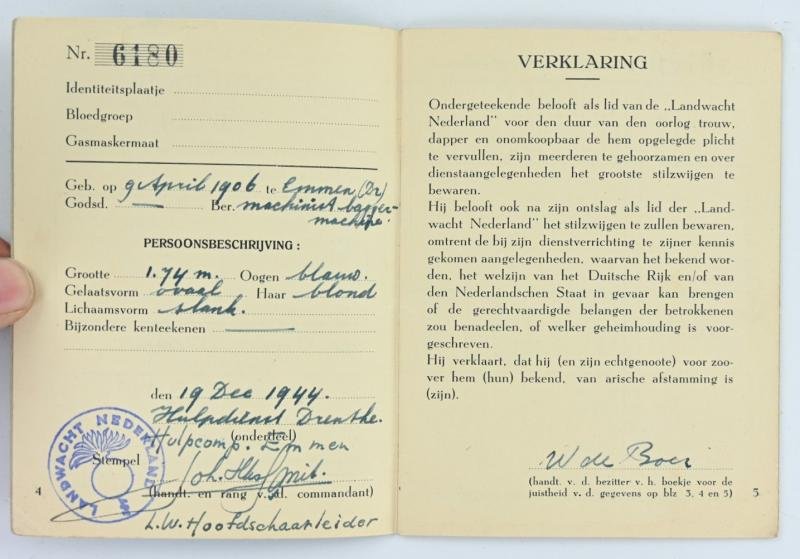 Nr. 6180
Identiteitsplaatje
Bloedgroep
Gasmaskermaat
Geb. op 9 April 1906 te Emmen (Dr)
Godsd. — Ber. machinist bagger-
machine.
PERSOONSBESCHRIJVING :
Grootte 1.74 m. Oogen blauw.
Gelaatsvorm ovaal Haar blond
Lichaamsvorm slank.
Bijzondere kenteekenen —
den 19 Dec 1944
Hulpdienst Drenthe.
(onderdeel)
Hulpcomp. Emmen
Stempel Joh.
(handt. en rang v. d. commandant)
L.W. Hoofdschaarleider
LANDWACHT NEDERLAND
4
VERKLARING
Ondergeteekende belooft als lid van de „Landwacht
Nederland" voor den duur van den oorlog trouw,
dapper en onomkoopbaar de hem opgelegde plicht
te vervullen, zijn meerderen te gehoorzamen en over
dienstaangelegenheden het grootste stilzwijgen te
bewaren.
Hij belooft ook na zijn ontslag als lid der „Land-
wacht Nederland" het stilzwijgen te zullen bewaren,
omtrent de bij zijn dienstverrichting te zijner kennis
gekomen aangelegenheden, waarvan het bekend wor-
den, het welzijn van het Duitsche Rijk en/of van
den Nederlandschen Staat in gevaar kan brengen
of de gerechtvaardigde belangen der betrokkenen
zou benadeelen, of welker geheimhouding is voor-
geschreven.
Hij verklaart, dat hij (en zijn echtgenoote) voor zoo-
ver hem (hun) bekend, van arische afstamming is
(zijn).
W de Boer
(handt. v. d. bezitter v. h. boekje voor de
juistheid v. d. gegevens op blz 3, 4 en 5)
5